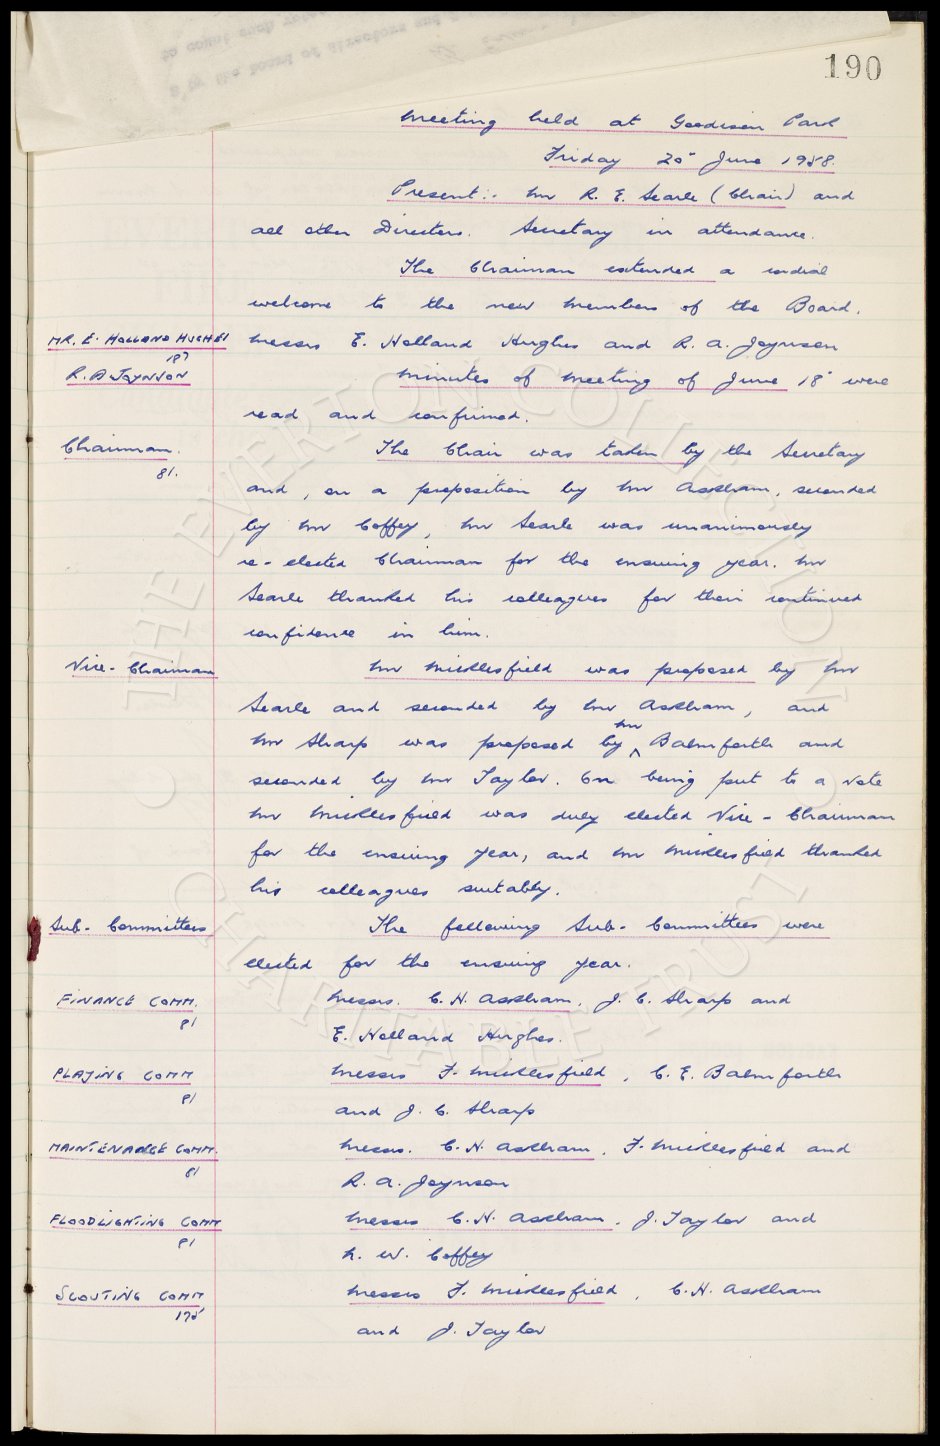 190
Meeting held at Goodison Park
Friday 20" June 1958.
Present:- Mr R. E. Searle (Chair) and
all other Directors. Secretary in attendance.
The Chairman extended a cordial
welcome to the new members of the Board.
MR. E. HOLLAND HUGHES
187
R. A JOYNSON
Messrs E. Holland Hughes and R. A. Joynson
Minutes of meeting of June 18" were
read and confirmed.
Chairman.
81.
The Chair was taken by the Secretary
and, on a proposition by Mr Askham, seconded
by Mr Coffey, Mr Searle was unanimously
re-elected Chairman for the ensuing year. Mr
Searle thanked his colleagues for their continued
confidence in him.
Vice-Chairman
Mr Micklesfield was proposed by Mr
Searle and seconded by Mr Askham, and
Mr Sharp was proposed by Mr Balmforth and
seconded by Mr Taylor. On being put to a vote
Mr Micklesfield was duly elected Vice-Chairman
for the ensuing year, and Mr Micklesfield thanked
his colleagues suitably.
Sub-Committees
The following Sub-Committees were
elected for the ensuing year.
FINANCE COMM.
81
Messrs. C. H. Askham, J. C. Sharp and
E. Holland Hughes.
PLAYING COMM
81
Messrs F. Micklesfield, C. E. Balmforth
and J. C. Sharp
MAINTENANCE COMM.
81
Messrs. C. H. Askham, F. Micklesfield and
R. A. Joynson
FLOODLIGHTING COMM
81
Messrs C. H. Askham, J. Taylor and
N. W. Coffey
SCOUTING COMM
175
Messrs F. Micklesfield, C. H. Askham
and J. Taylor
THE EVERTON COLLECTION
CHARITABLE TRUST